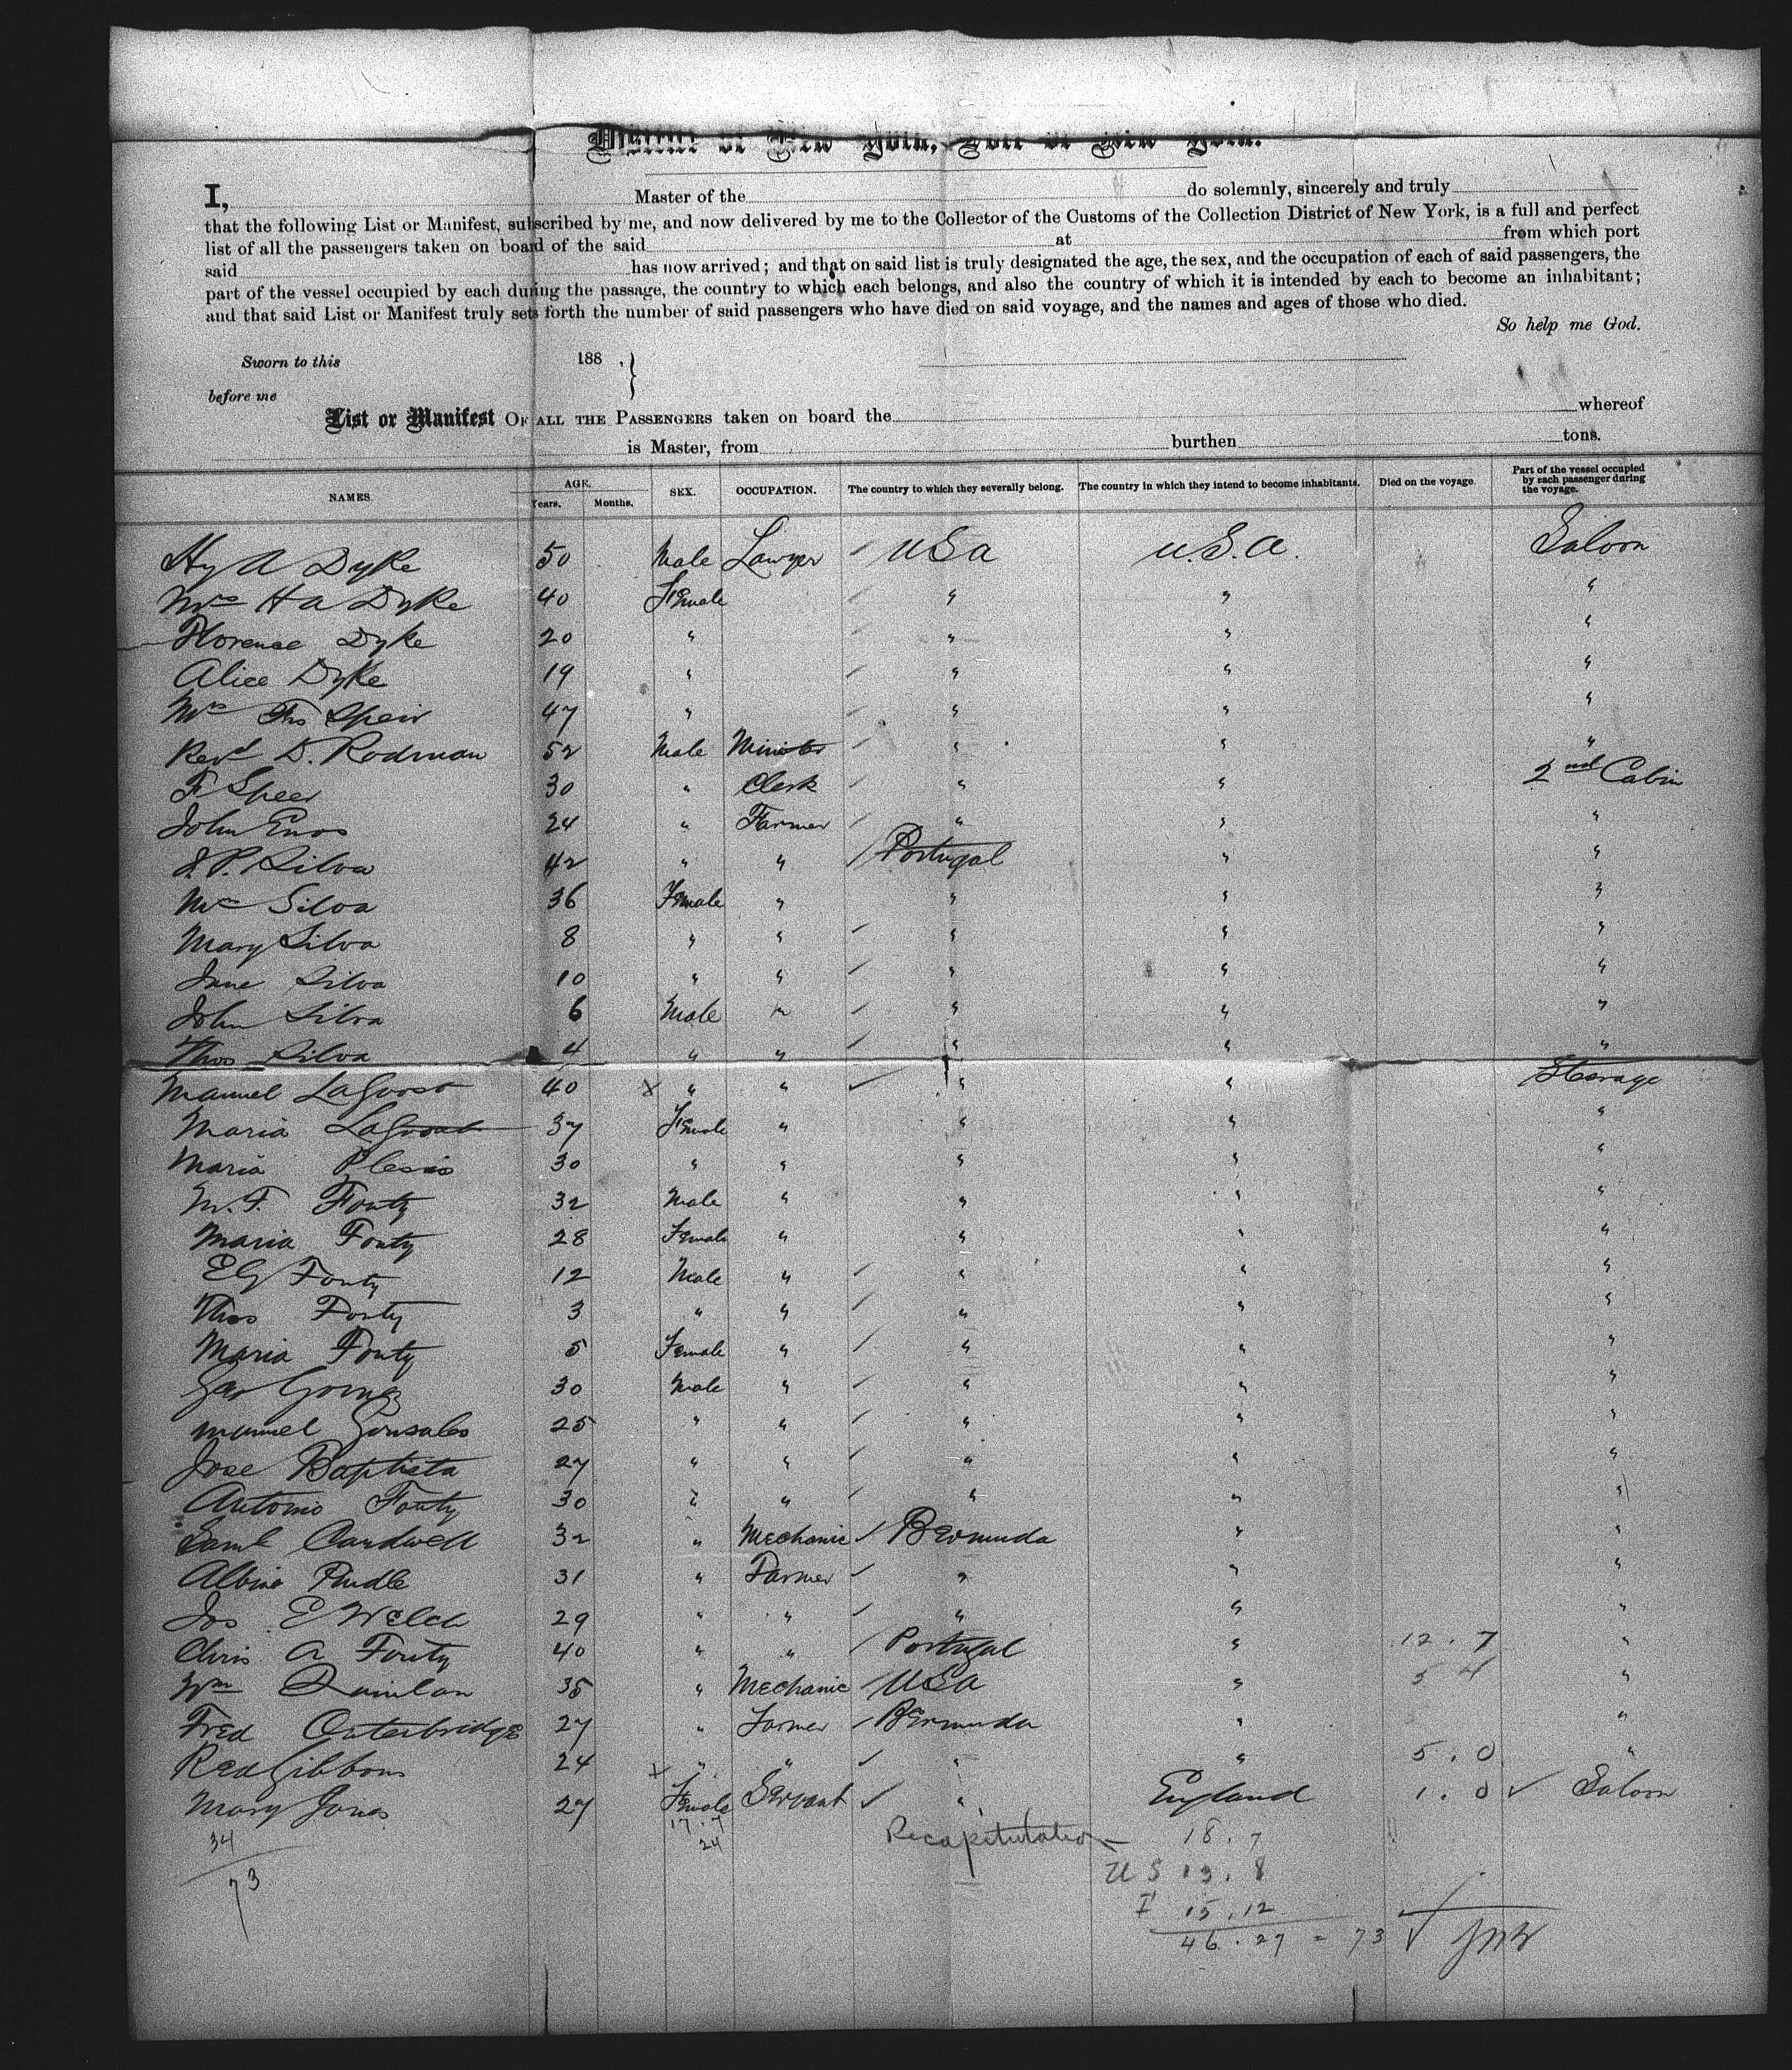 District of New York, Port of New York.
I, Master of the do solemnly, sincerely and truly
that the following List or Manifest, subscribed by me, and now delivered by me to the Collector of the Customs of the Collection District of New York, is a full and perfect
list of all the passengers taken on board of the said at from which port
said has now arrived; and that on said list is truly designated the age, the sex, and the occupation of each of said passengers, the
part of the vessel occupied by each during the passage, the country to which each belongs, and also the country of which it is intended by each to become an inhabitant;
and that said List or Manifest truly sets forth the number of said passengers who have died on said voyage, and the names and ages of those who died.
So help me God.
Sworn to this 188 , }
before me
List or Manifest OF ALL THE PASSENGERS taken on board the whereof
is Master, from burthen tons.
NAMES. AGE. Years. Months. SEX. OCCUPATION. The country to which they severally belong. The country in which they intend to become inhabitants. Died on the voyage. Part of the vessel occupied by each passenger during the voyage.
Hy A Dyke 50 Male Lawyer USA U.S.A. Saloon
Mrs H A Dyke 40 Female " " "
Florence Dyke 20 " " " "
Alice Dyke 19 " " " "
Mrs Speir 47 " " " "
Revd D. Rodman 52 Male Minister " " "
F Speer 30 " Clerk " " 2nd Cabin
John Enos 24 " Farmer " " "
J. P. Silva 42 " " Portugal " "
Mrs Silva 36 Female " " " "
Mary Silva 8 " " " " "
Jane Silva 10 " " " " "
John Silva 6 Male " " " "
Thos Silva 4 " " " " "
Manuel 40 x " " " " Steerage
Maria 37 Female " " " "
Maria 30 " " " " "
M. F. Fouty 32 Male " " " "
Maria Fouty 28 Female " " " "
Fouty 12 Male " " " "
Thos Fouty 3 " " " " "
Maria Fouty 5 Female " " " "
Gomez 30 Male " " " "
Manuel Gonsales 25 " " " " "
Jose Baptista 27 " " " " "
Antonio Fouty 30 " " " " "
Saml Cardwell 32 " Mechanic Bermuda " "
Albino Pindle 31 " Farmer " " "
Jos E Welch 29 " " " " "
Chris A Fouty 40 " " Portugal " 12 . 7 "
Wm Quinlan 35 " Mechanic USA " 5 4 "
Fred Outerbridge 27 " Farmer Bermuda " "
Gibbons 24 x " " " " 5 . 0 "
Mary Jones 27 Female Servant " England 1 . 0 Saloon
34 17 . 7 Recapitulation 18 . 7
73 24 U S 13 . 8
15 . 12
46 . 27 = 73